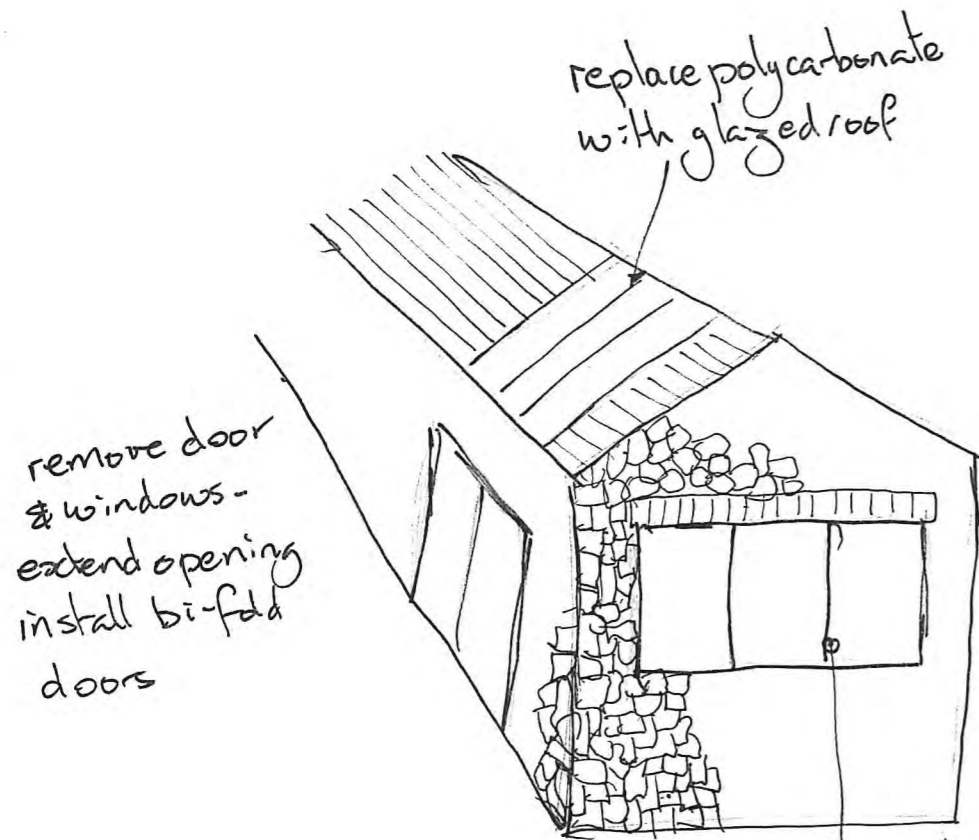 replace polycarbonate
with glazed roof
remove door
& windows -
extend opening
install bi-fold
doors